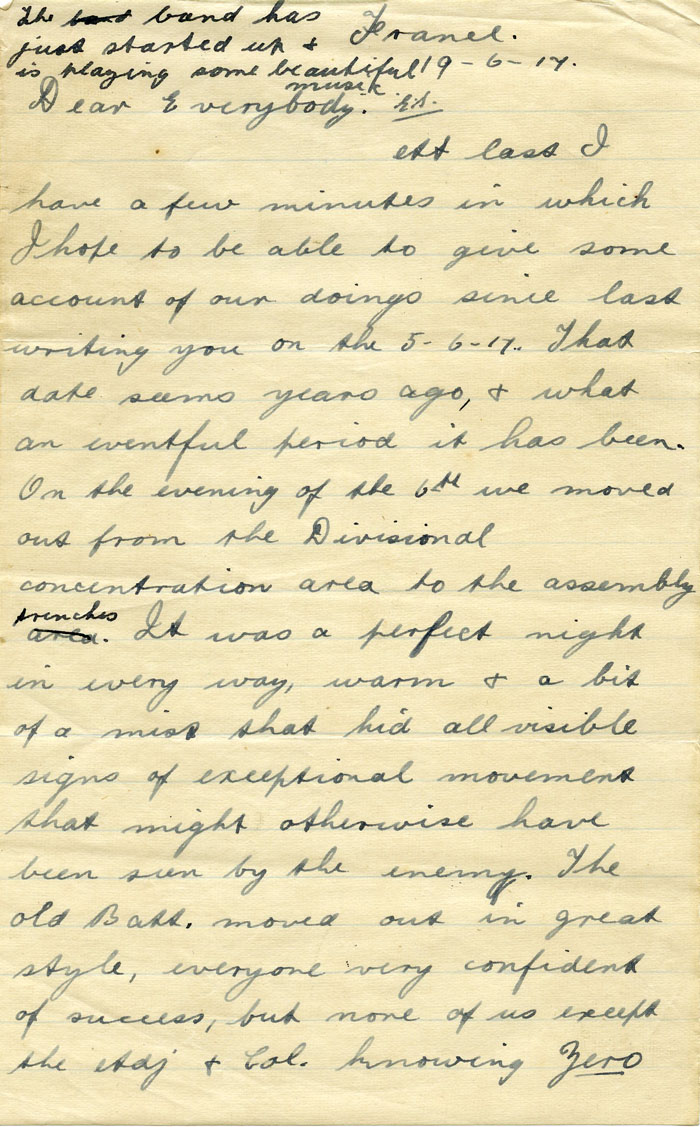 The band band has
just started up &
is playing some beautiful
music.
France.
19-6-17.
Dear Everybody.
At last I
have a few minutes in which
I hope to be able to give some
account of our doings since last
writing you on the 5-6-17. That
date seems years ago, & what
an eventful period it has been.
On the evening of the 6th we moved
out from the Divisional
concentration area to the assembly
trenches
area. It was a perfect night
in every way, warm & a bit
of a mist that hid all visible
signs of exceptional movement
that might otherwise have
been seen by the enemy. The
old Batt. moved out in great
style, everyone very confident
of success, but none of us except
the Adj & Col. knowing Zero